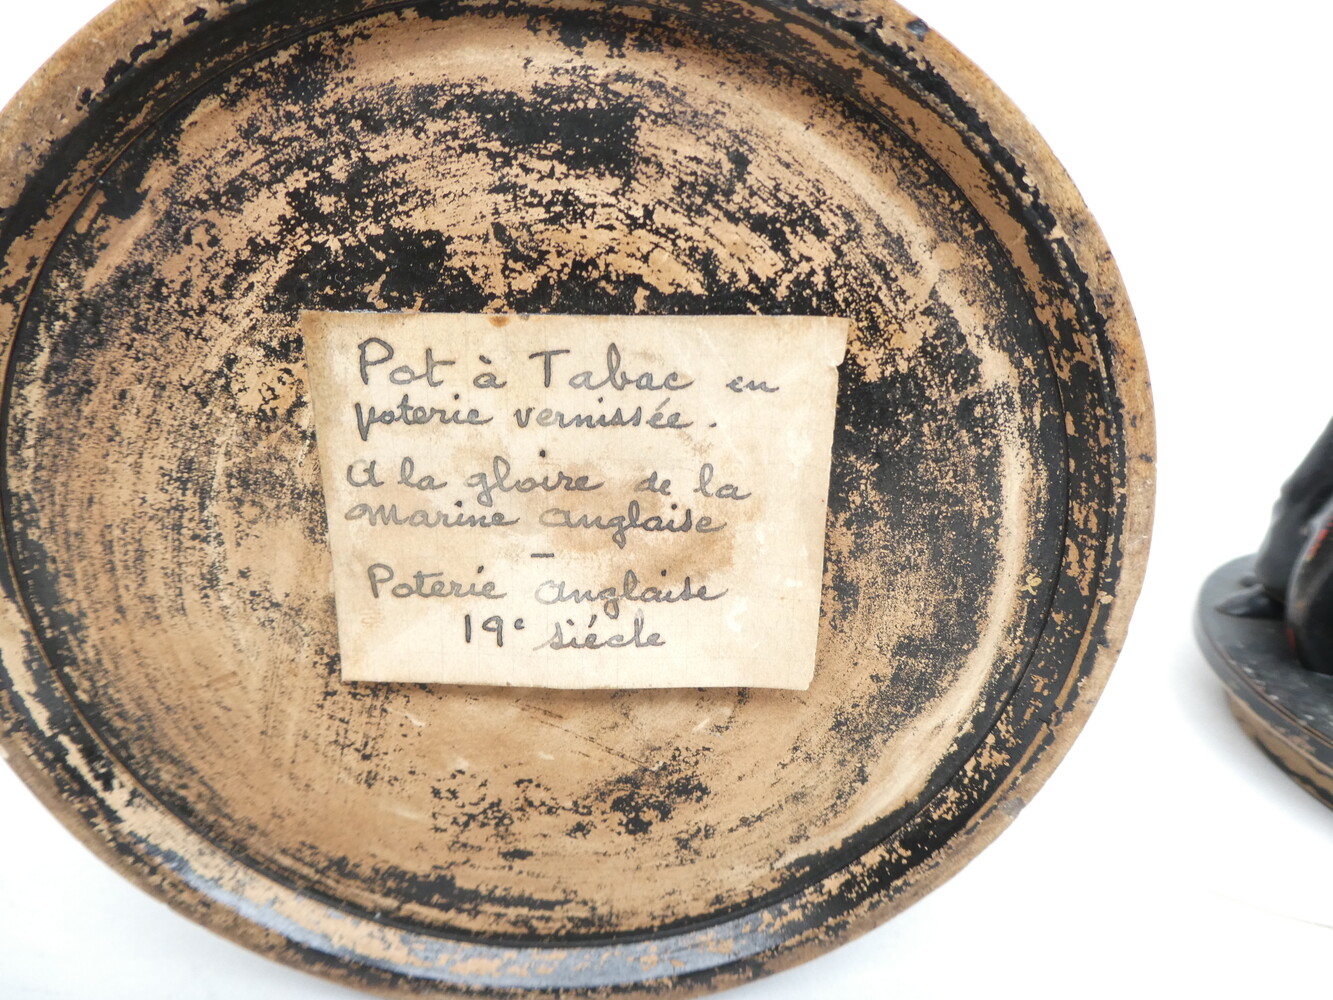 Pot à Tabac en
poterie vernissée.
A la gloire de la
Marine anglaise
—
Poterie anglaise
19e siécle